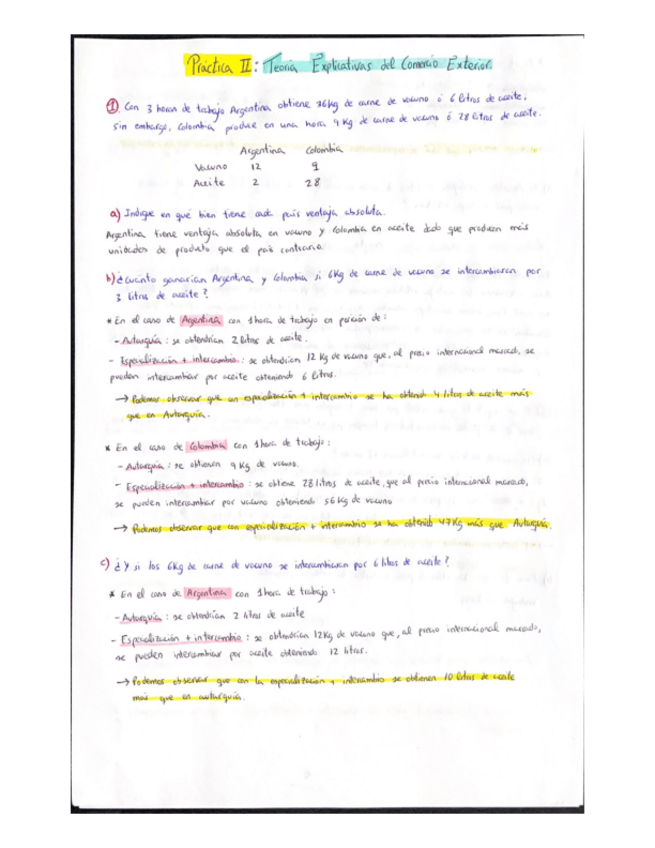 Práctica II: Teoría Explicativas del Comercio Exterior.
1) Con 3 horas de trabajo Argentina obtiene 36kg de carne de vacuno ó 6 litros de aceite,
sin embargo, Colombia produce en una hora 9 Kg de carne de vacuno ó 28 litros de aceite.
Argentina Colombia
Vacuno 12 9
Aceite 2 28
a) Indique en qué bien tiene cada país ventaja absoluta.
Argentina tiene ventaja absoluta en vacuno y Colombia en aceite dado que producen más
unidades de producto que el país contrario.
b) ¿Cuánto ganarían Argentina y Colombia si 6Kg de carne de vacuno se intercambiaran por
3 litros de aceite?
* En el caso de Argentina con 1 hora de trabajo en posición de:
- Autarquía: se obtendrían 2 litros de aceite.
- Especialización + intercambio: se obtendrían 12 Kg de vacuno que, al precio internacional marcado, se
pueden intercambiar por aceite obteniendo 6 litros.
→ Podemos observar que con especialización + intercambio se ha obtenido 4 litros de aceite más
que en Autarquía.
* En el caso de Colombia con 1 hora de trabajo:
- Autarquía: se obtienen 9 Kg de vacuno.
- Especialización + intercambio: se obtiene 28 litros de aceite, que al precio internacional marcado,
se pueden intercambiar por vacuno obteniendo 56 kg de vacuno
→ Podemos observar que con especialización + intercambio se ha obtenido 47 Kg más que Autarquía.
c) ¿Y si los 6kg de carne de vacuno se intercambiaran por 6 litros de aceite?
* En el caso de Argentina con 1 hora de trabajo:
- Autarquía: se obtendrían 2 litros de aceite
- Especialización + intercambio: se obtendrían 12Kg de vacuno que, al precio internacional marcado,
se pueden intercambiar por aceite obteniendo 12 litros.
→ Podemos observar que con la especialización + intercambio se obtienen 10 litros de aceite
más que en autarquía.